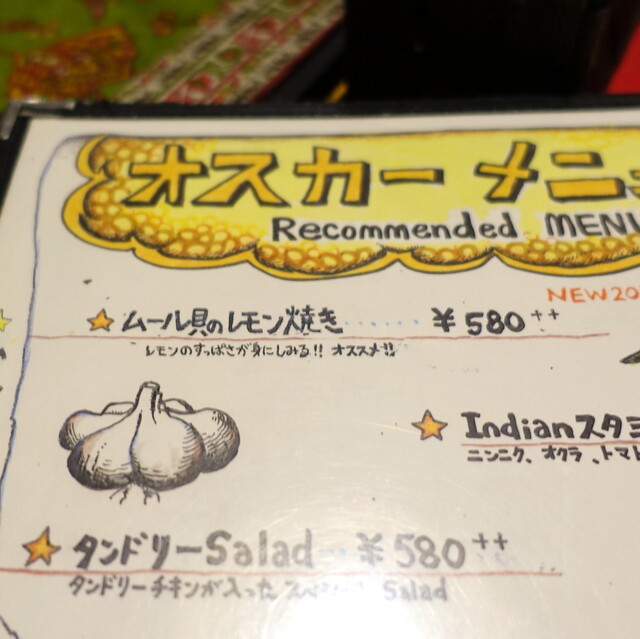 オスカー メニュ
Recommended MENU
NEW20
ムール貝のレモン焼き ...... ¥580++
レモンのすっぱさが身にしみる!! オススメ!!
Indianスタミ
ニンニク、オクラ、トマト
タンドリーSalad ... ¥580++
タンドリーチキンが入った Salad